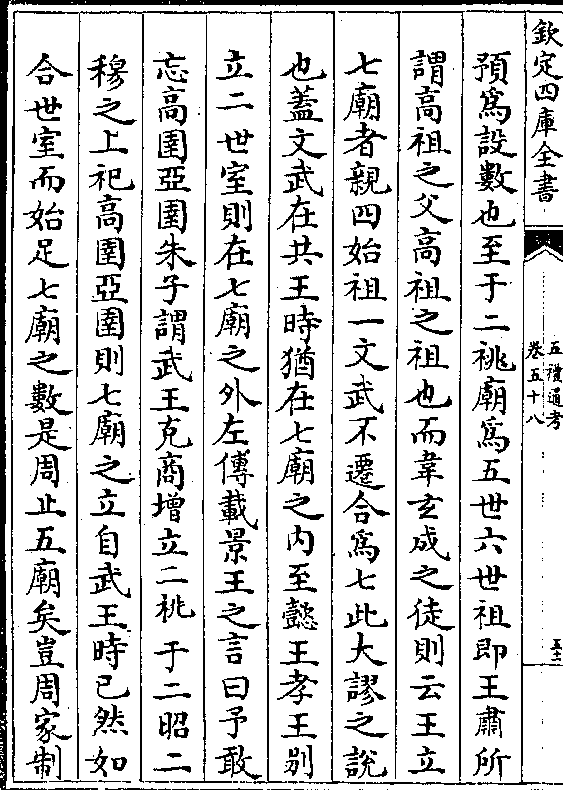 欽定四庫全書
五禮通考
卷五十八
預爲設數也至于二祧廟爲五世六世祖即王肅所
謂高祖之父高祖之祖也而韋玄成之徒則云王立
七廟者親四始祖一文武不遷合爲七此大謬之説
也蓋文武在共王時猶在七廟之内至懿王孝王别
立二世室則在七廟之外左傳載景王之言曰予敢
忘高圉亞圉朱子謂武王克商增立二祧于二昭二
穆之上祀高圉亞圉則七廟之立自武王時已然如
合世室而始足七廟之數是周止五廟矣豈周家制